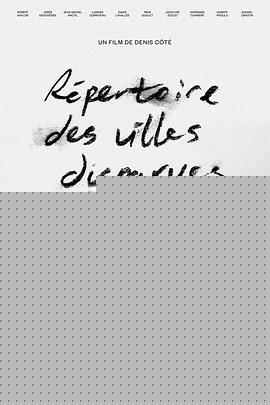 ROBERT NAYLOR JOSÉE DESCHÊNES JEAN-MICHEL ANCTIL LARISSA CORRIVEAU DIANE LAVALLÉE RÉMI GOULET JOCELYNE ZUCCO NORMAND CARRIÈRE HUBERT PROULX RACHEL GRATON
UN FILM DE DENIS CÔTÉ
Répertoire
des villes
disparues